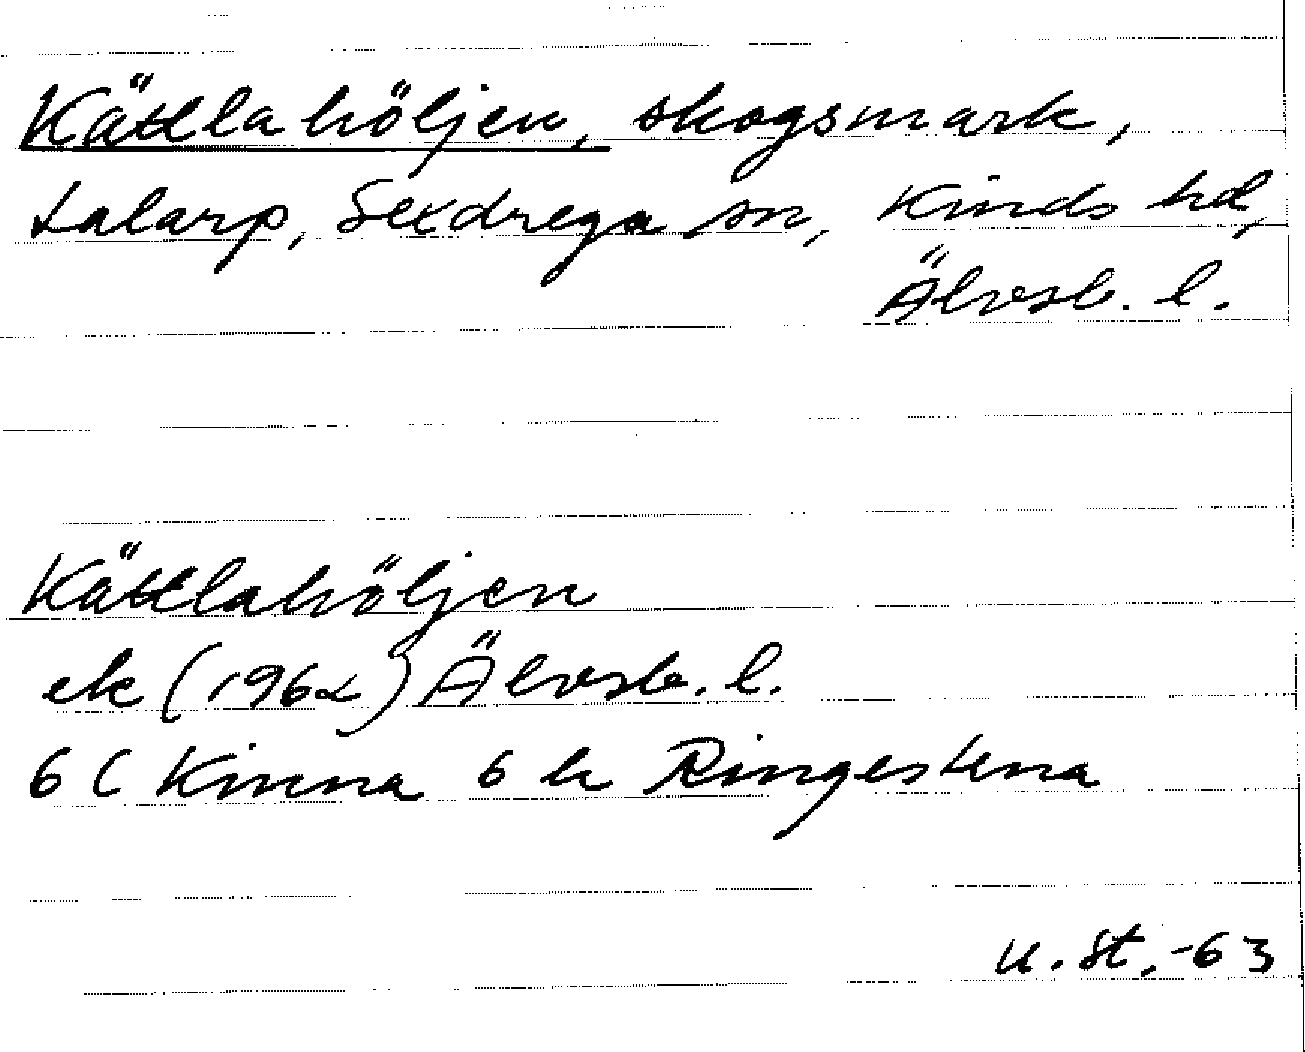 Kättlahöljen, skogsmark,
Lalarp, Sexdrega sn, Kinds hd,
Älvsb. l.
Kättlahöljen
ek (1962) Älvsb. l.
6 C Kinna 6 h Ringestena
U. St. -63